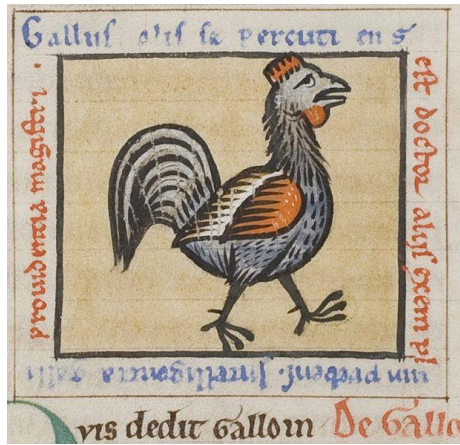 Gallus alis se percuti en s
est doctor alijs exempl
um prebens. Intelligencia galli
prouidencia magistri.
vis dedit Gallo in De Gallo